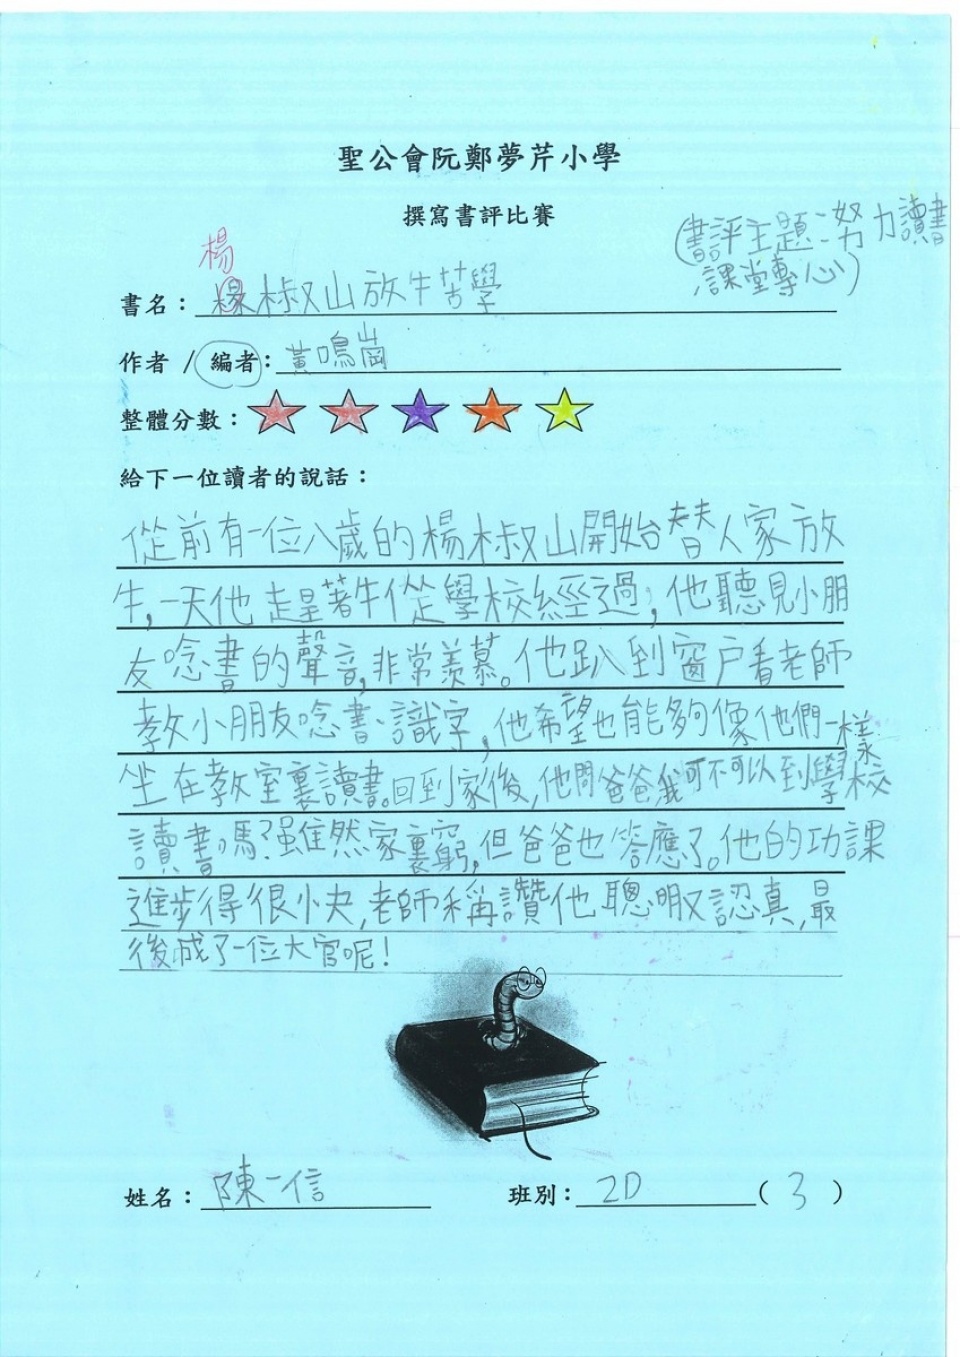 聖公會阮鄭夢芹小學
撰寫書評比賽
(書評主題:努力讀書
課堂專心)
楊
書名：椒山放牛苦學
作者 / 編者：黃鳴崗
整體分數：
給下一位讀者的說話：
從前有一位八歲的楊椒山開始替人家放
牛,一天他趕著牛從學校經過,他聽見小朋
友唸書的聲音,非常羨慕。他趴到窗户看老師
教小朋友唸書、識字,他希望也能夠像他們一樣
坐在教室裏讀書。回到家後,他問爸爸我可不可以到學校
讀書嗎?雖然家裏窮,但爸爸也答應了。他的功課
進步得很小夬,老師稱讚他聰明又認真,最
後成了一位大官呢!
姓名：陳一信
班別：2D (3)